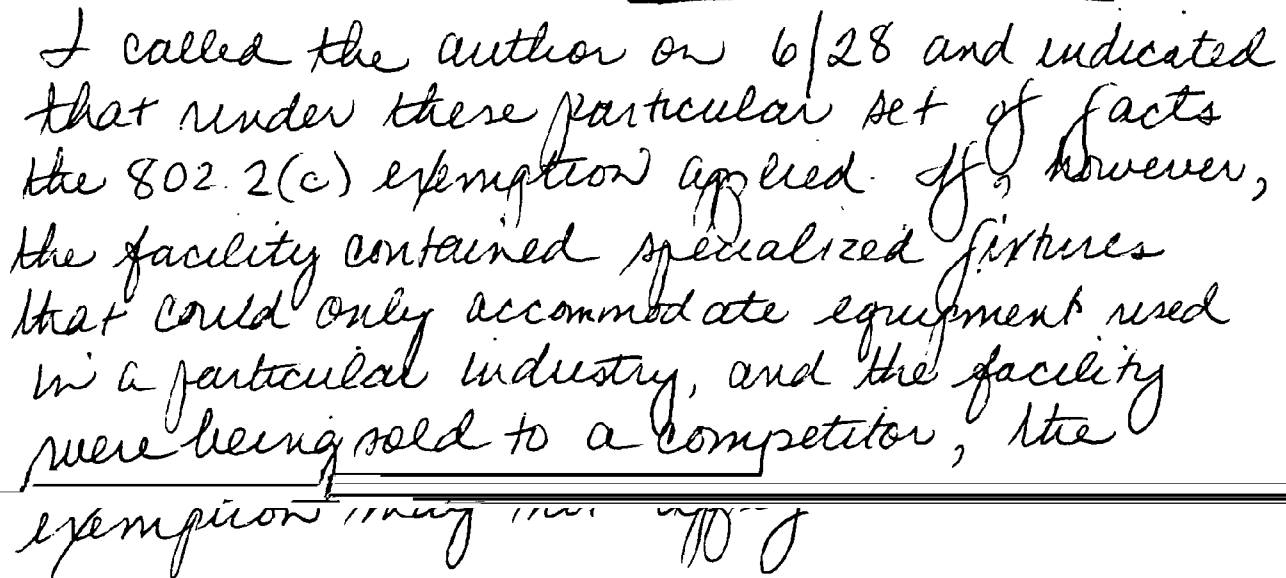 I called the author on 6/28 and indicated
that under these particular set of facts
the 802.2(c) exemption applied. If, however,
the facility contained specialized fixtures
that could only accommodate equipment used
in a particular industry, and the facility
were being sold to a competitor, the
exemption may not apply